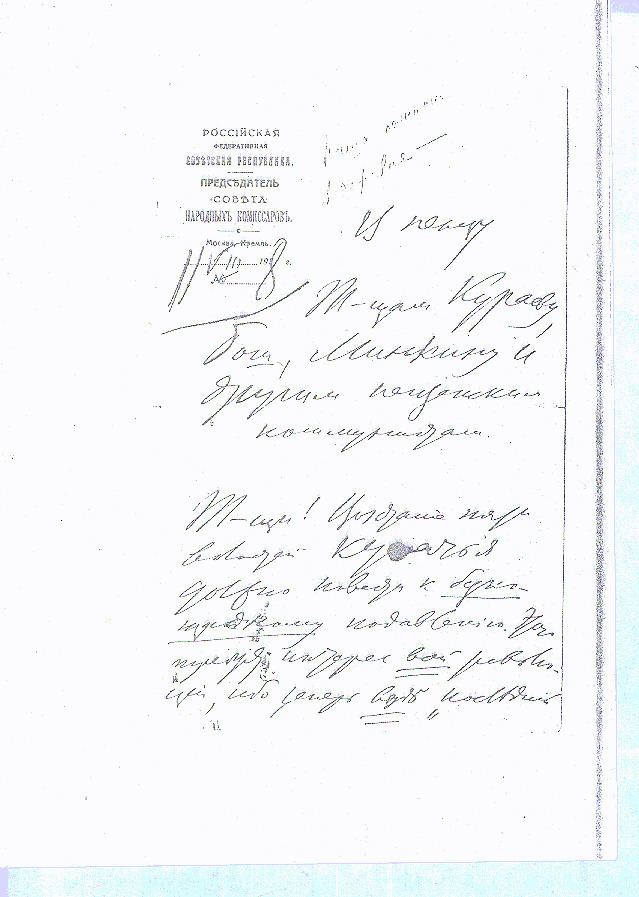 РОССІЙСКАЯ
ФЕДЕРАТИВНАЯ
СОВѢТСКАЯ РЕСПУБЛИКА.
ПРЕДСѢДАТЕЛЬ
СОВѢТА
НАРОДНЫХЪ КОМИССАРОВЪ.
Москва, Кремль.
11/VIII 1918 г.
№
В Пензу
Т-щам Кураеву,
Бош, Минкину и
другим пензенским
коммунистам.
Т-щи! Восстание пяти
волостей кулачья
должно повести к беспо-
щадному подавлению. Этого
требует интерес всей револю-
ции, ибо теперь везде „последний